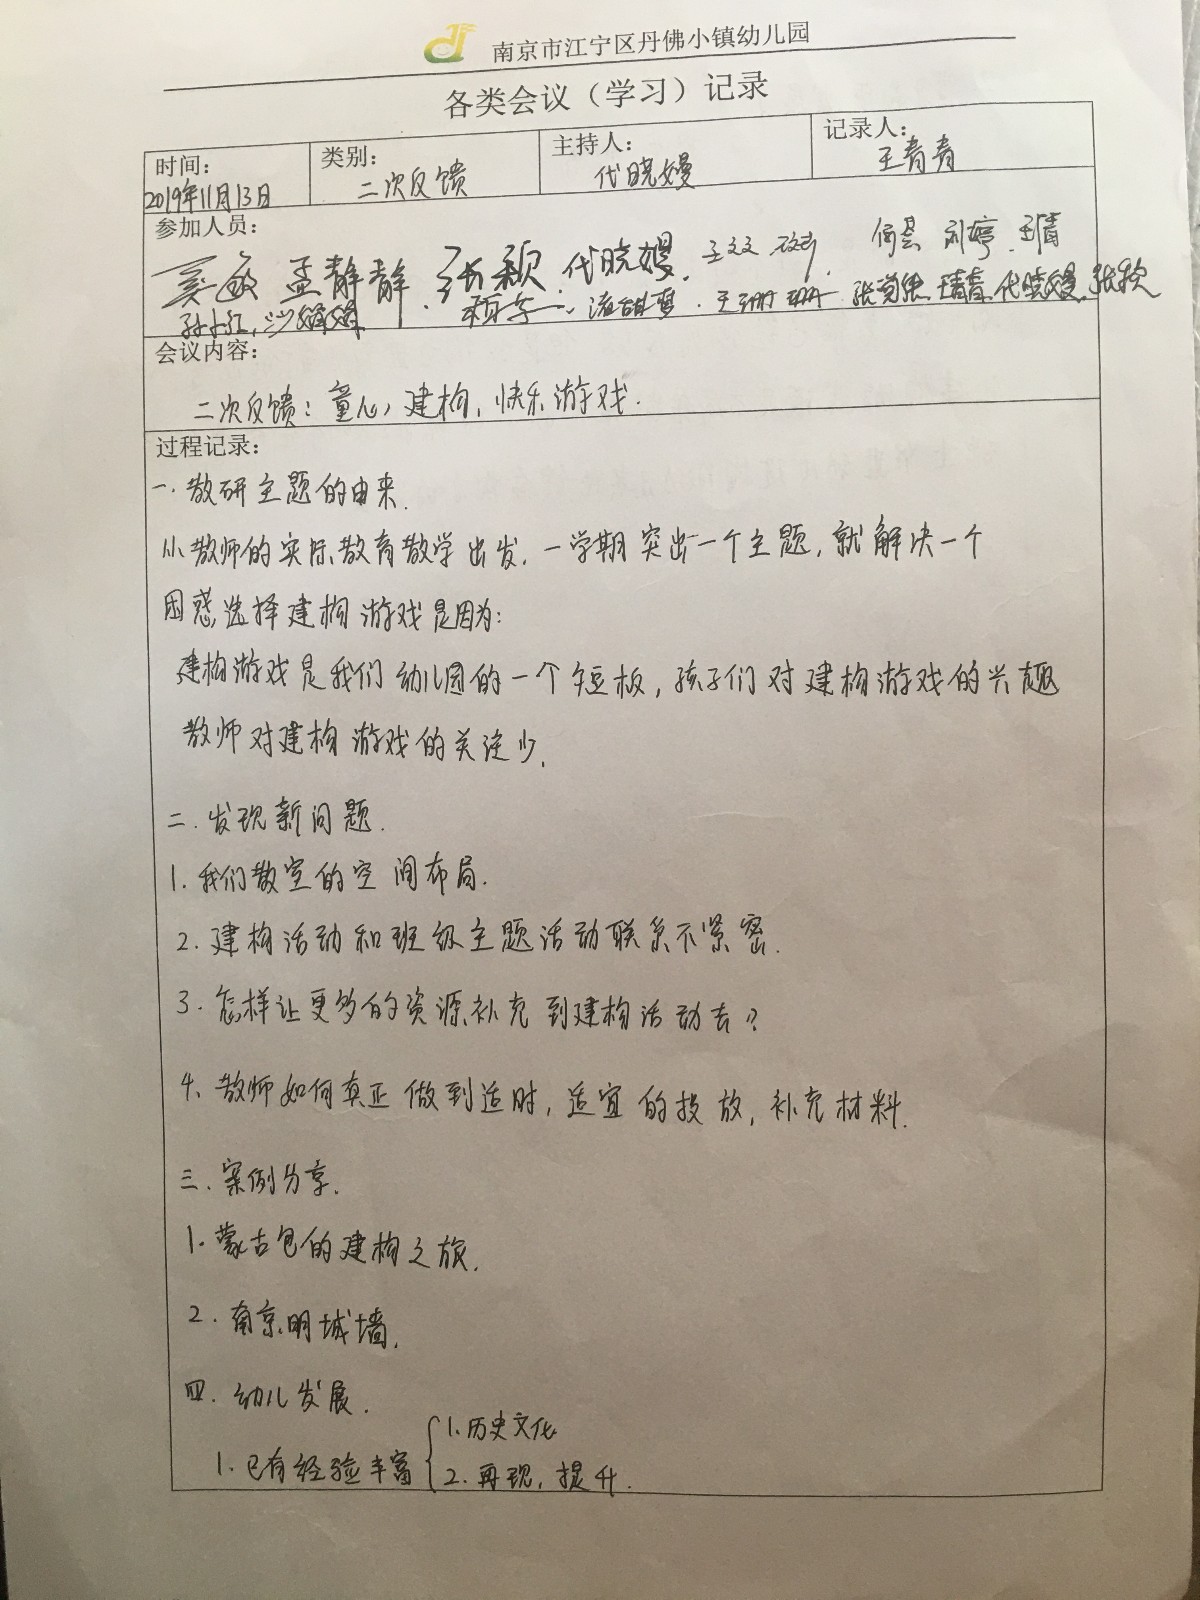 南京市江宁区丹佛小镇幼儿园
各类会议（学习）记录
时间：
2019年11月13日
类别：
二次反馈
主持人：
代晓嫚
记录人：
王青青
参加人员：
孟静静 张颖 代晓嫚 何昙 刘婷
孙小红，沙娟娟 王珊珊 代晓嫚
会议内容：
二次反馈：童心建构，快乐游戏．
过程记录：
一．教研主题的由来．
从教师的实际教育教学出发，一学期突出一个主题，就解决一个
困惑，选择建构游戏是因为：
建构游戏是我们幼儿园的一个短板，孩子们对建构游戏的兴趣
教师对建构游戏的关注少．
二．发现新问题．
1．我们教室的空间布局．
2．建构活动和班级主题活动联系不紧密．
3．怎样让更多的资源补充到建构活动去？
4、教师如何真正做到适时，适宜的投放，补充材料．
三．案例分享．
1．蒙古包的建构之旅．
2．南京明城墙．
四．幼儿发展．
1．已有经验丰富 1．历史文化
2．再现，提升．